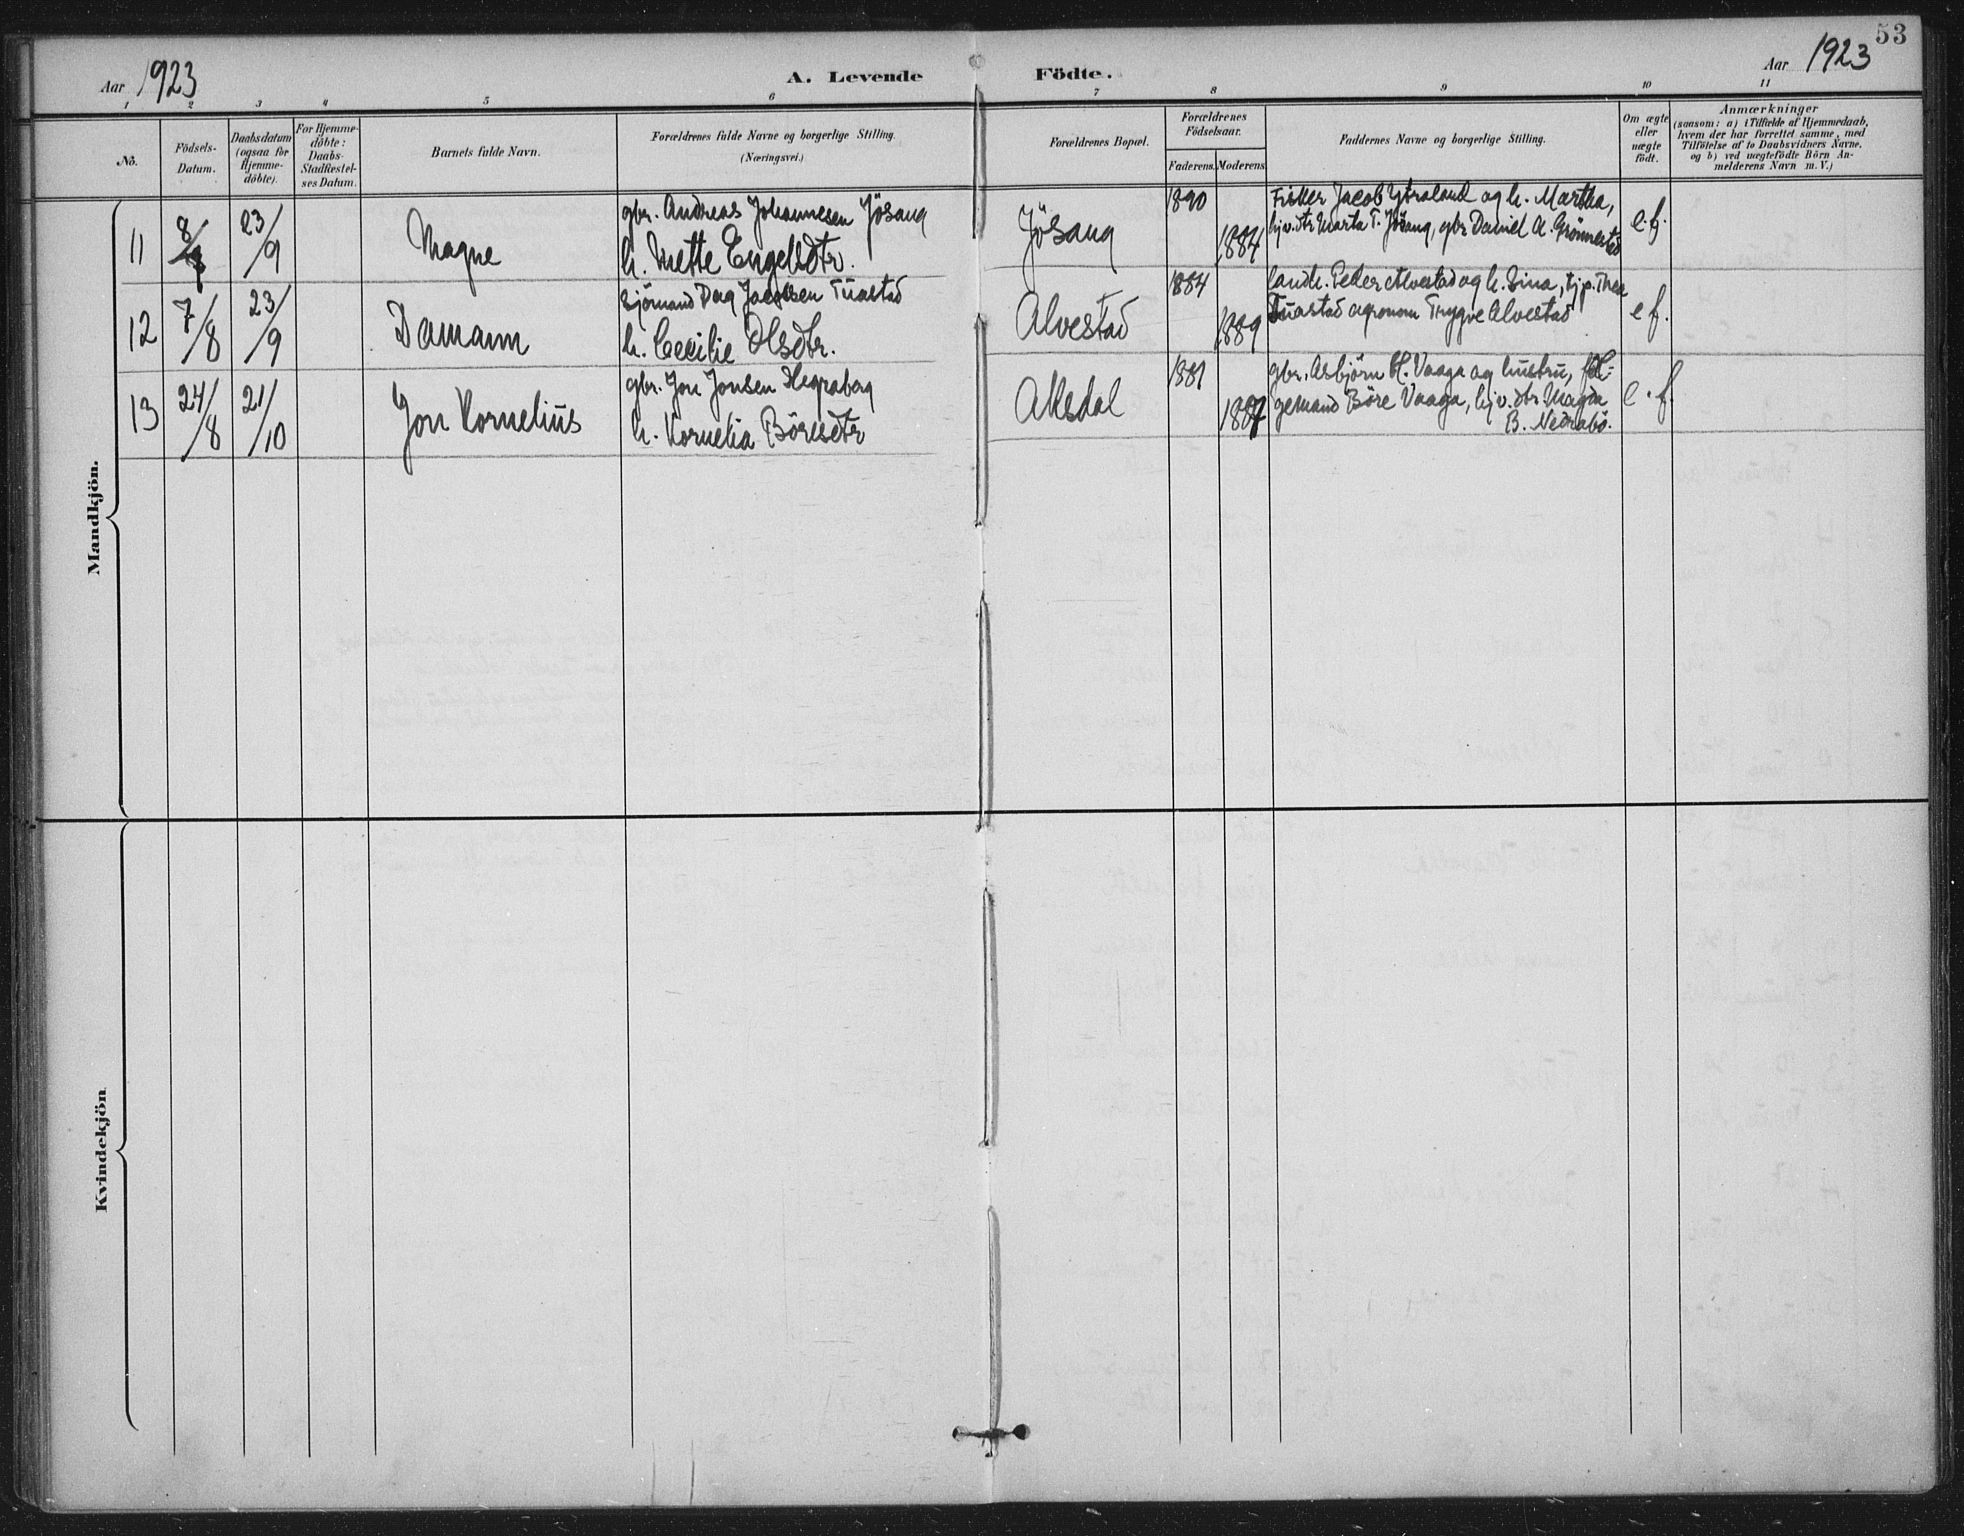 53
Aar 1923
A. Levende Födte.
Aar 1923
1 2 3 4 5 6 7 8 9 10 11
No.
Födsels-
Datum.
Daabsdatum
(ogsaa for
Hjemme-
döbte).
For Hjemme-
döbte:
Daabs-
Stadfæstel-
ses Datum.
Barnets fulde Navn.
Forældrenes fulde Navne og borgerlige Stilling.
(Næringsvei.)
Forældrenes Bopæl.
Forældrenes
Födselsaar.
Faderens. Moderens.
Faddernes Navne og borgerlige Stilling.
Om ægte
eller
uægte
födt.
Anmærkninger
(saasom: a) i Tilfælde af Hjemmedaab,
hvem der har forrettet samme, med
Tilföielse af to Daabsvidners Navne,
og b) ved uægtefödte Börn An-
melderens Navn m. V.)
Mandkjön.
11 8/8 23/9 Magne
gbr. Andreas Johannesen Jösang
h. Mette Engelsdtr.
Jösang 1890 1884
Fisker Jacob Ytraland og h. Martha,
hjv. dtr Marta T. Jösang, gbr Daniel A. Grönnestad
e.f.
12 7/8 23/9 Damann
Sjömand Dag Jacobsen Tuastad
h. Cecilie Olsdtr.
Alvestad 1884 1889
landh. Peder Alvestad og h. Sina, tj.p. Thea
Tuastad agronom Trygve Alvestad
e f.
13 24/8 21/10 Jon Kornelius
gbr. Jon Jonsen Hegraberg
h. Kornelia Böresdtr
Aksdal 1881 1887
gbr. Asbjörn H. Vaaga og hustru,
gemand Böre Vaaga, hjv. dtr Magda
B. Nedrabö.
e.f.
Kvindekjön